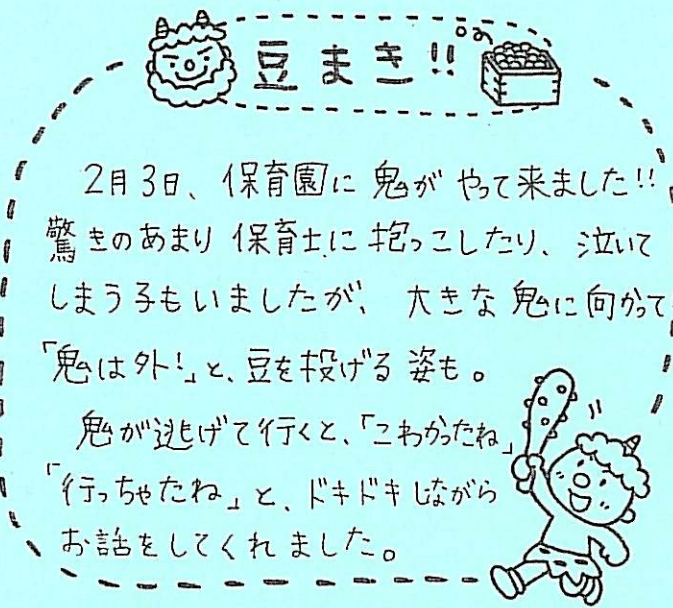 豆まき!!
2月3日、保育園に鬼がやって来ました!!
驚きのあまり保育士に抱っこしたり、泣いて
しまう子もいましたが、大きな鬼に向かって
「鬼は外!」と、豆を投げる姿も。
鬼が逃げて行くと、「こわかったね」
「行っちゃたね」と、ドキドキしながら
お話をしてくれました。